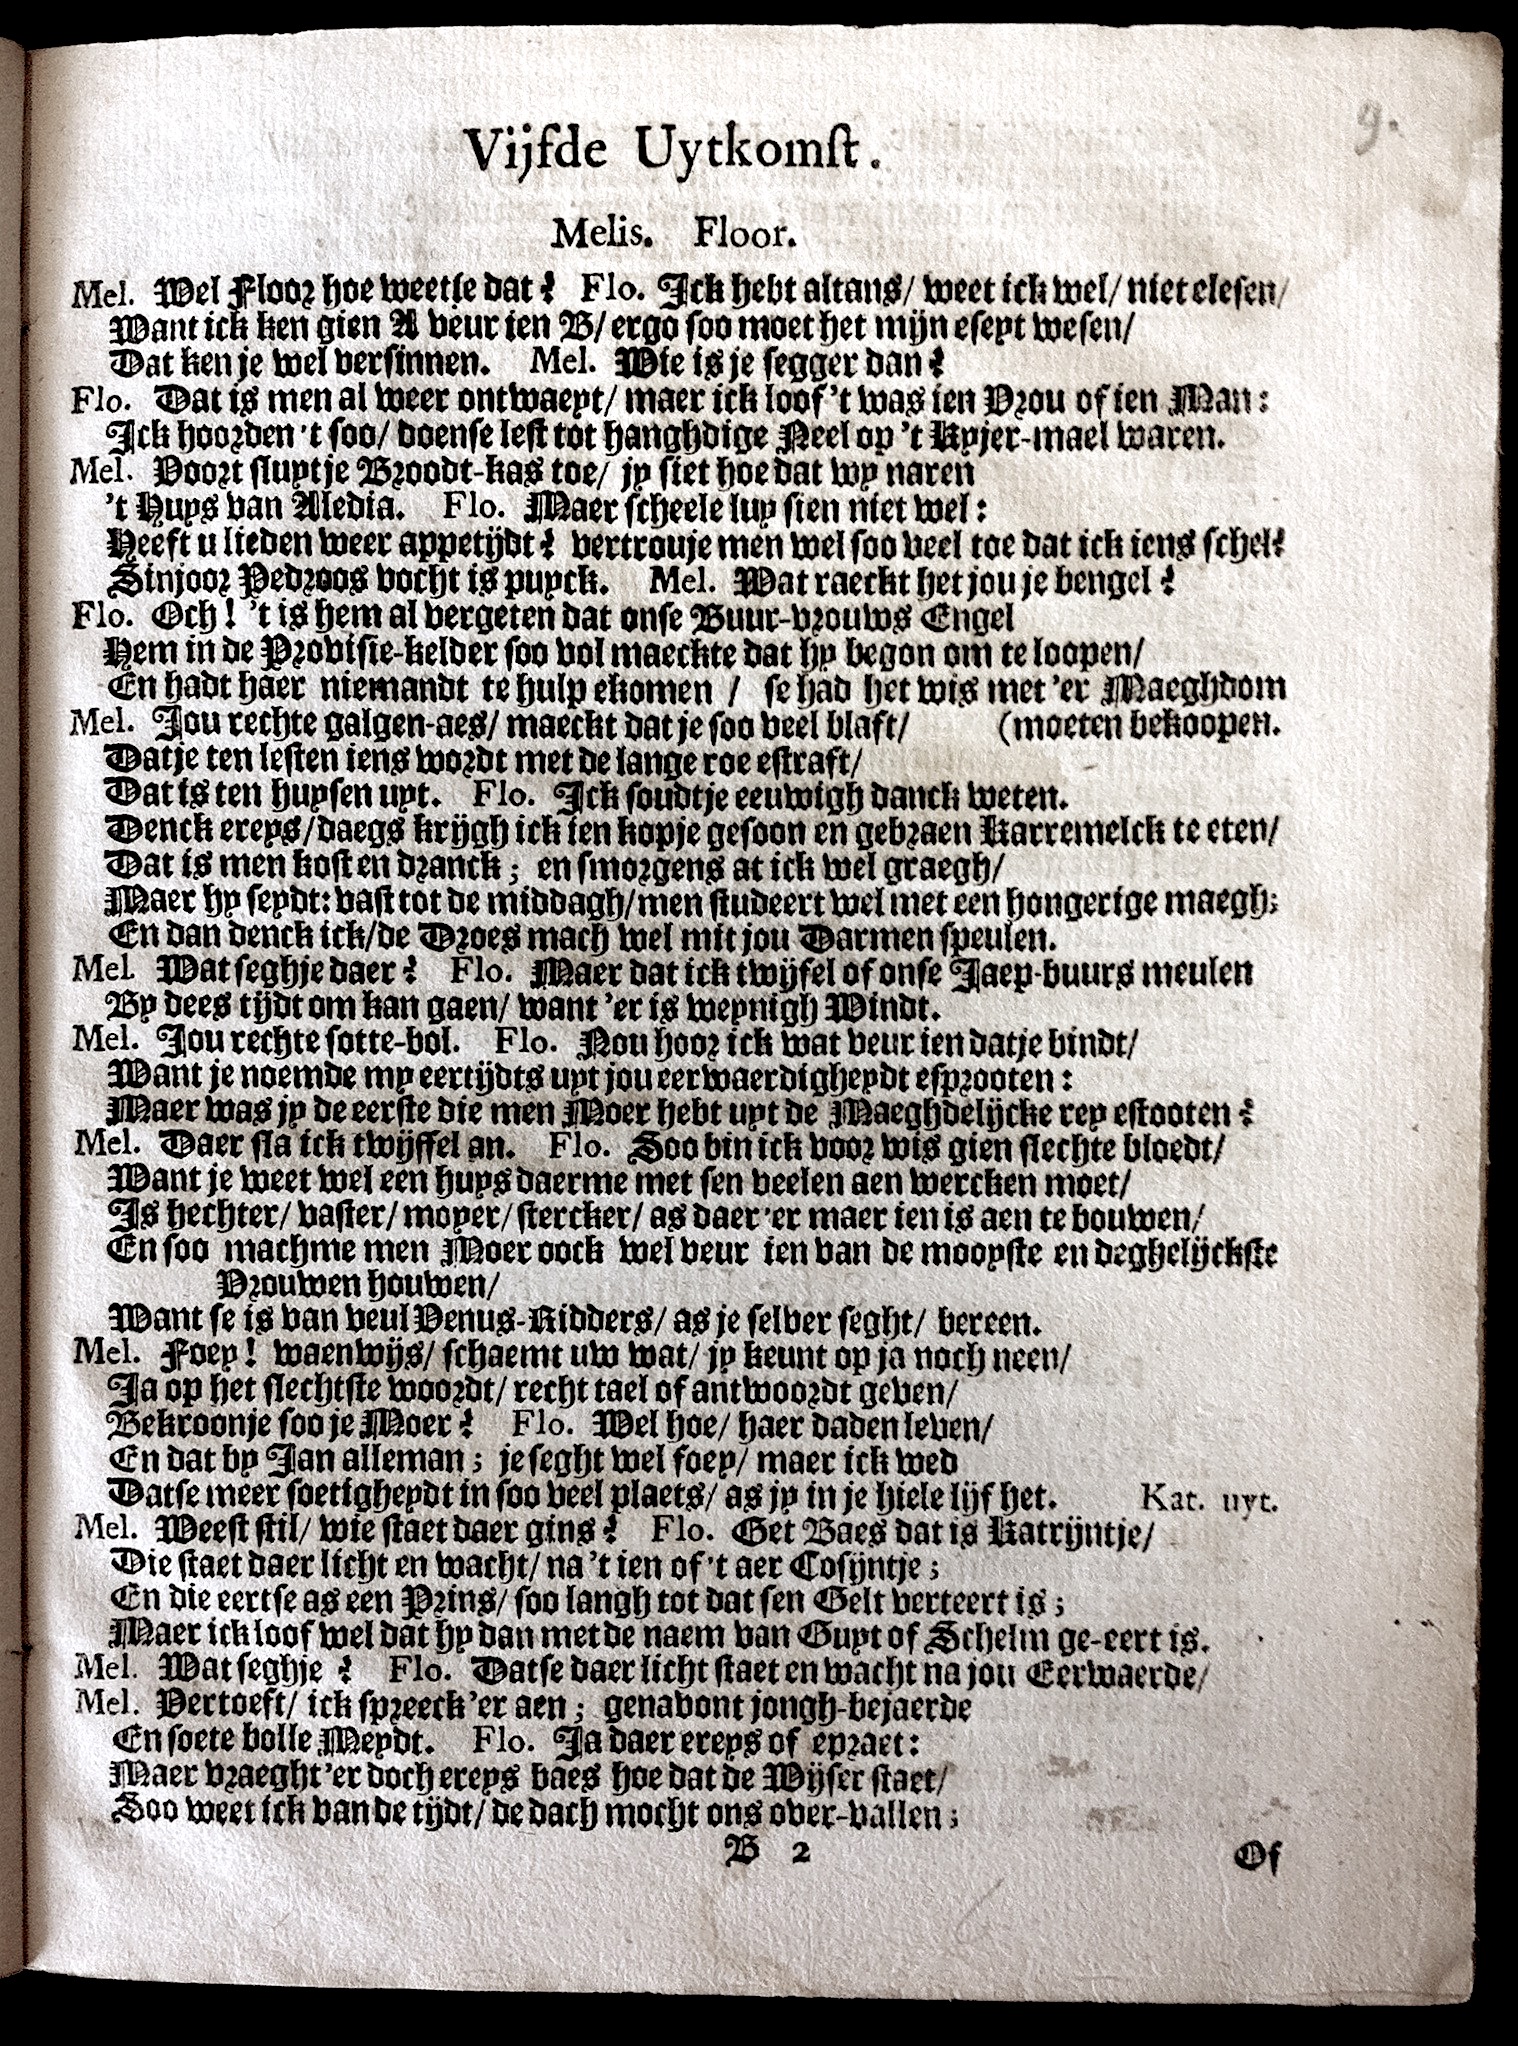 9.
Vijfde Uytkomst.
Melis. Floor.
Mel. Wel Floor hoe weetje dat? Flo. Ick hebt altans/ weet ick wel/ niet elesen/
Want ick ken gien A veur ien B/ ergo soo moet het mijn eseyt wesen/
Dat ken je wel versinnen. Mel. Wie is je segger dan?
Flo. Dat is men al weer ontwaeyt/ maer ick loof 't was ien Vrou of ien Man:
Ick hoorden 't soo/ doense lest tot hanghdige Neel op 't Kyjer-mael waren.
Mel. Voort sluytje Broodt-kas toe/ jy siet hoe dat wy naren
't Huys van Aledia. Flo. Maer scheele luy sien niet wel:
Heeft u lieden weer appetijdt? vertrouje men wel soo veel toe dat ick iens schel?
Sinjoor Pedroos vocht is puyck. Mel. Wat raeckt het jou je bengel?
Flo. Och! 't is hem al vergeten dat onse Buur-vrouws Engel
Hem in de Provisie-kelder soo vol maeckte dat hy begon om te loopen/
En hadt haer niemandt te hulp ekomen / se had het wis met 'er Maeghdom
Mel. Jou rechte galgen-aes/ maeckt dat je soo veel blaft/ (moeten bekoopen.
Datje ten lesten iens wordt met de lange roe estraft/
Dat is ten huysen uyt. Flo. Ick soudtje eeuwigh danck weten.
Denck ereys/daegs krijgh ick ien kopje gesoon en gebraen Karremelck te eten/
Dat is men kost en dranck; en smorgens at ick wel graegh/
Maer hy seydt: vast tot de middagh/men studeert wel met een hongerige maegh;
En dan denck ick/de Droes mach wel mit jou Darmen speulen.
Mel. Wat seghje daer? Flo. Maer dat ick twijfel of onse Jaep-buurs meulen
By dees tijdt om kan gaen/ want 'er is weynigh Windt.
Mel. Jou rechte sotte-bol. Flo. Nou hoor ick wat veur ien datje bindt/
Want je noemde my eertijdts uyt jou eerwaerdigheydt esprooten:
Maer was jy de eerste die men Moer hebt uyt de Maeghdelijcke rey estooten?
Mel. Daer sla ick twijffel an. Flo. Soo bin ick voor wis gien slechte bloedt/
Want je weet wel een huys daerme met sen veelen aen wercken moet/
Is hechter/ vaster/ moyer/ stercker/ as daer 'er maer ien is aen te bouwen/
En soo machme men Moer oock wel veur ien van de mooyste en deghelijckste
Vrouwen houwen/
Want se is van veul Venus-Ridders/ as je selver seght/ bereen.
Mel. Foey! waenwijs/ schaemt uw wat/ jy keunt op ja noch neen/
Ja op het slechtste woordt/ recht tael of antwoordt geven/
Bekroonje soo je Moer? Flo. Wel hoe/ haer daden leven/
En dat by Jan alleman; je seght wel foey/ maer ick wed
Datse meer soetigheydt in soo veel plaets/ as jy in je hiele lijf het. Kat. uyt.
Mel. Weest stil/ wie staet daer gins? Flo. Get Baes dat is Katrijntje/
Die staet daer licht en wacht/ na 't ien of 't aer Cosijntje;
En die eertse as een Prins/ soo langh tot dat sen Gelt verteert is;
Maer ick loof wel dat hy dan met de naem van Guyt of Schelm ge-eert is.
Mel. Wat seghje? Flo. Datse daer licht staet en wacht na jou Eerwaerde/
Mel. Vertoeft/ ick spreeck 'er aen; genavont jongh-bejaerde
En soete bolle Meydt. Flo. Ja daer ereys of epraet:
Maer vraeght 'er doch ereys baes hoe dat de Wijser staet/
Soo weet ick van de tijdt/ de dach mocht ons over-vallen;
B 2
Of